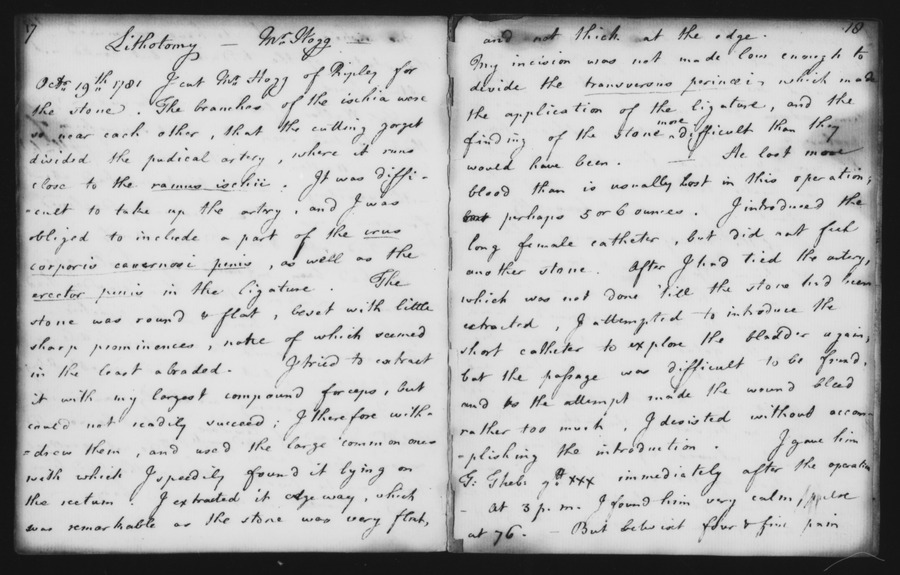 17
Lithotomy — Mr. Hogg —
Octr. 19th 1781 I cut Mr. Hogg of Ripley for
the stone. The branches of the ischia were
so near each other, that the cutting gorget
divided the pudical artery, where it runs
close to the ramus ischii. It was diffi-
-cult to take up the artery, and I was
obliged to include a part of the crus
corporis cavernosi penis, as well as the
erector penis in the ligature. The
stone was round & flat, beset with little
sharp prominences, none of which seemed
in the least abraded. I tried to extract
it with my largest compound forceps, but
could not readily succeed; I therefore with-
-drew them, and used the large common ones
with which I speedily found it lying on
the rectum. I extracted it edgeway, which
was remarkable as the stone was very flat,
18
and not thick at the edge.
My incision was not made low enough to
divide the transversus perinaei, which made
the application of the ligature, and the
finding of the stone more difficult than they
would have been. — He lost more
blood than is usually lost in this operation;
perhaps 5 or 6 ounces. I introduced the
long female catheter, but did not feel
another stone. After I had tied the artery,
which was not done 'till the stone had been
extracted, I attempted to introduce the
short catheter to explore the bladder again,
but the passage was difficult to be found,
and as the attempt made the wound bleed
rather too much, I desisted without accom-
-plishing the introduction. I gave him
G: Theb: gtt xxx immediately after the operation
- At 3 p.m. I found him very calm, pulse
at 76. — But betwixt four & five pain